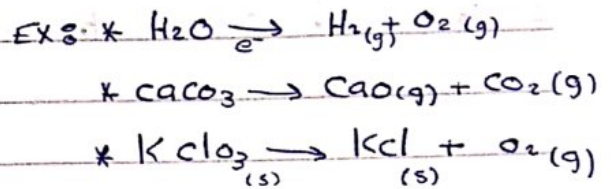 Ex: * H2O ⟶ H2(g) + O2(g)
e⁻
* CaCO3 ⟶ CaO(g) + CO2(g)
* KClO3(s) ⟶ KCl(s) + O2(g)